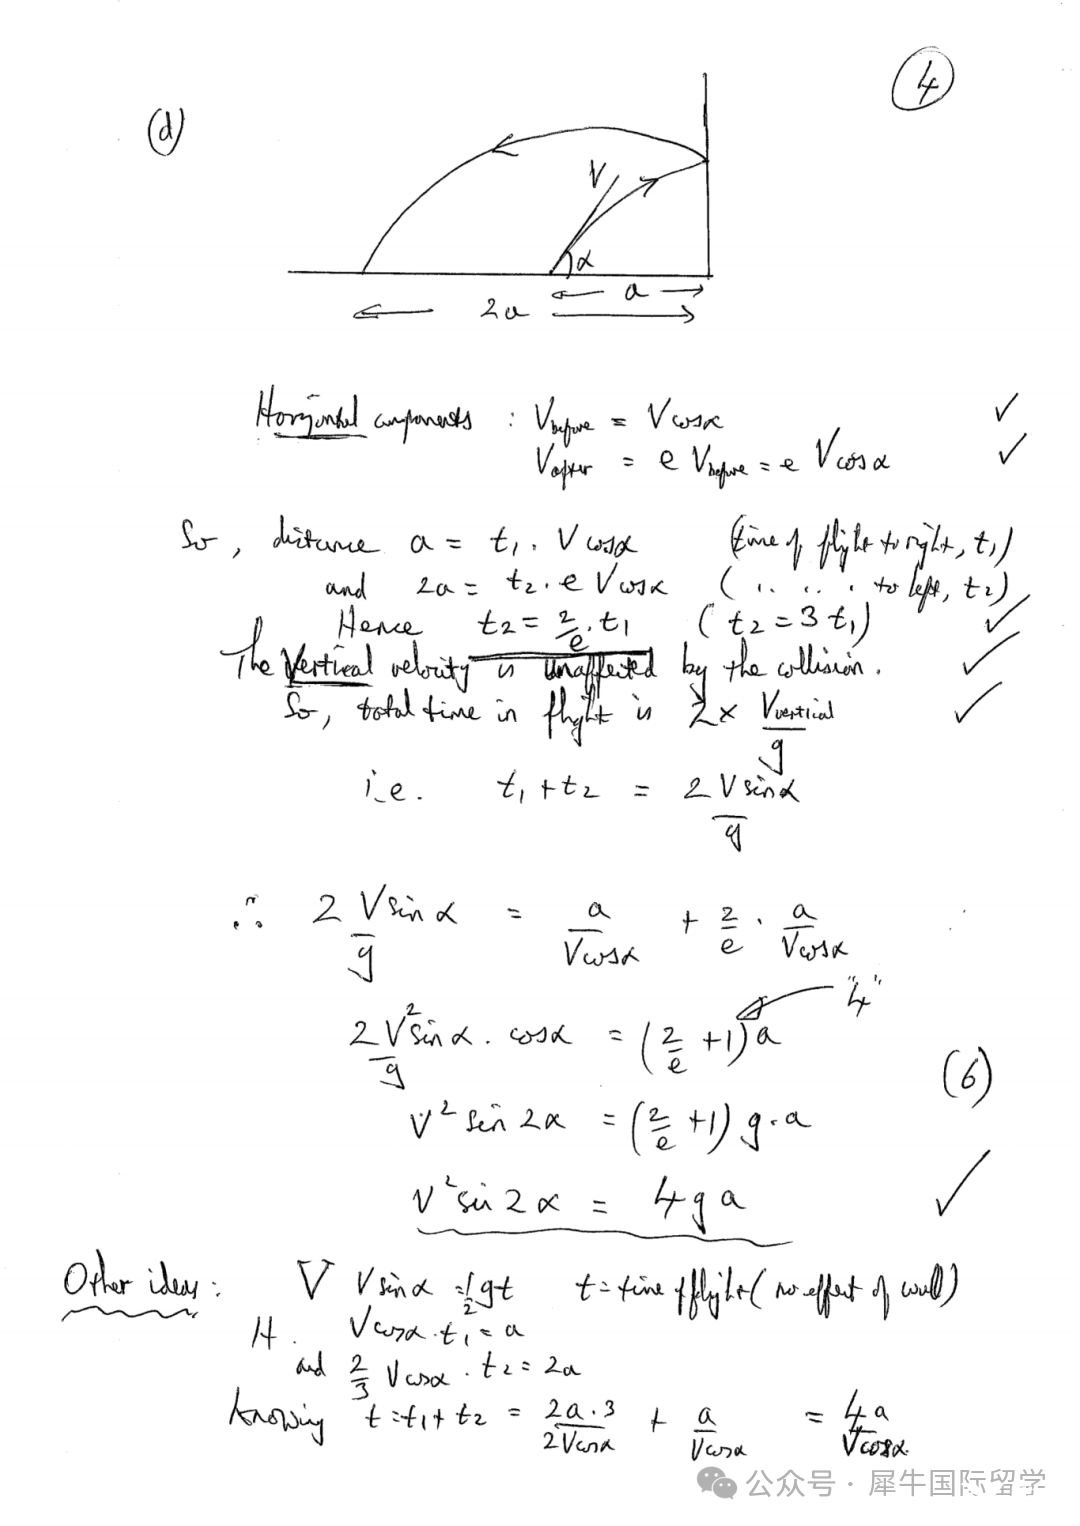 4
(d)
V
α
a
2a
Horizontal components : V before = V cosα ✓
V after = e V before = e V cosα ✓
So, distance a = t₁ . V cosα (time of flight to right, t₁)
and 2a = t₂ . e V cosα ( .. .. . to left, t₂)
Hence t₂ = 2/e . t₁ (t₂ = 3 t₁) ✓
The Vertical velocity is unaffected by the collision. ✓
So, total time in flight is 2 × V vertical / g ✓
i.e. t₁ + t₂ = 2 V sinα / g
∴ 2 V sinα / g = a / V cosα + 2/e . a / V cosα
"4"
2 V² sinα . cosα / g = (2/e + 1) a
(6)
V² sin 2α = (2/e + 1) g . a
V² sin 2α = 4 g a ✓
Other ideas : V V sinα = ½ gt t = time of flight (no effect of wall)
H . V cosα . t₁ = a
and 2/3 V cosα . t₂ = 2a
knowing t = t₁ + t₂ = 2a . 3 / 2V cosα + a / V cosα = 4a / V cosα
公众号 · 犀牛国际留学